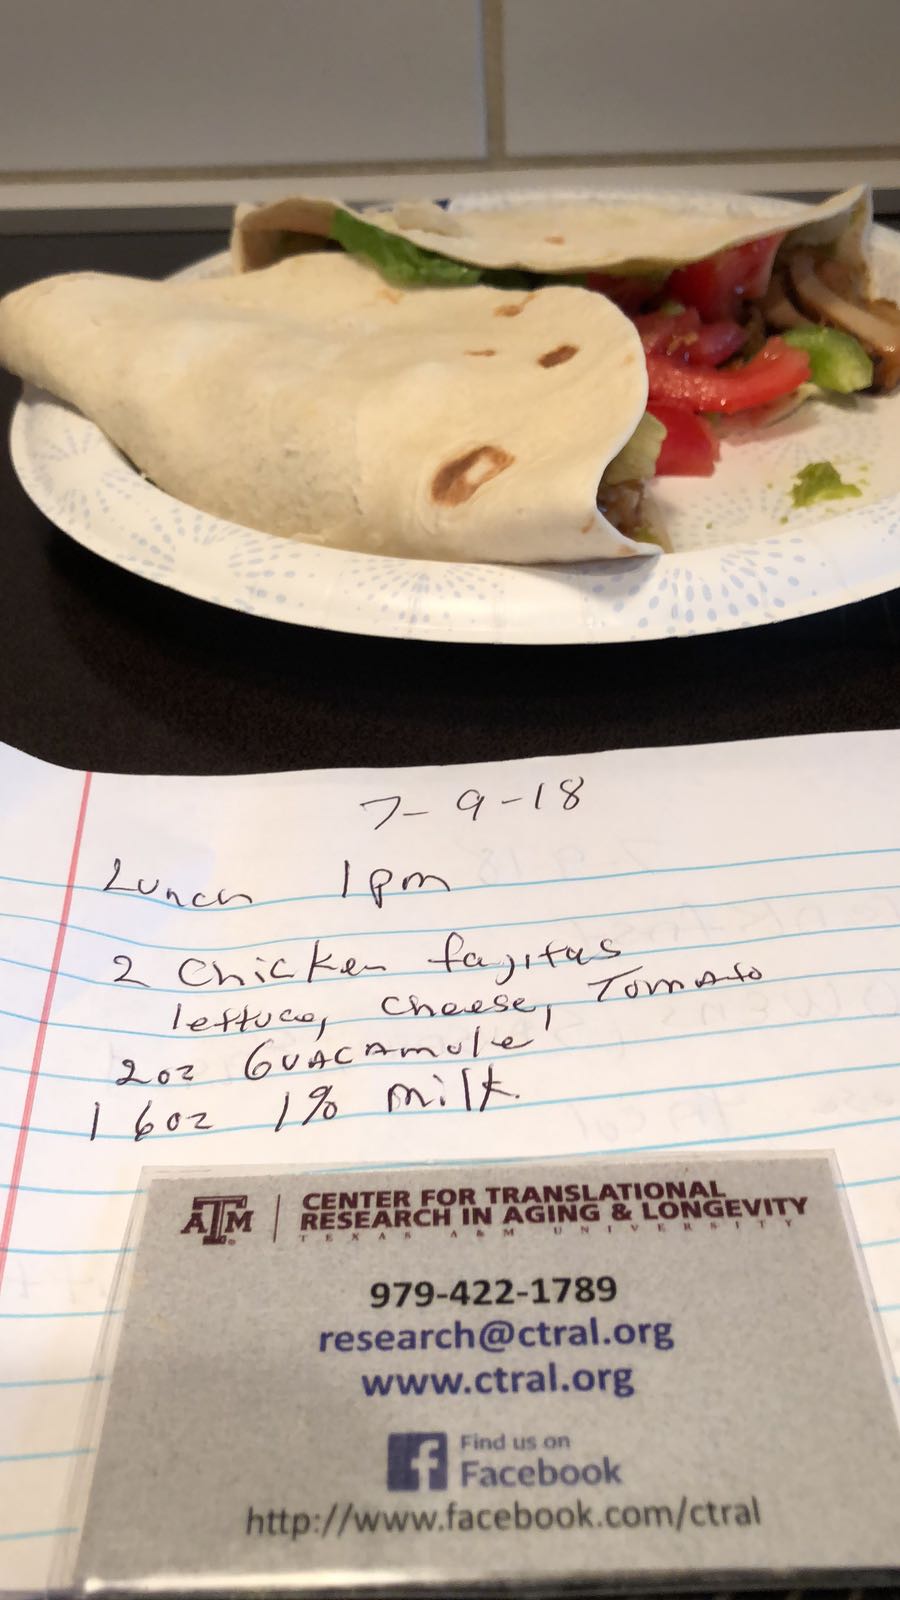 7-9-18
Lunch 1pm
2 Chicken fajitas
lettuce, cheese, Tomato
2oz GUACAmole
1 6oz 1% milk.
ATM CENTER FOR TRANSLATIONAL
RESEARCH IN AGING & LONGEVITY
TEXAS A&M UNIVERSITY
979-422-1789
research@ctral.org
www.ctral.org
f Find us on
Facebook
http://www.facebook.com/ctral